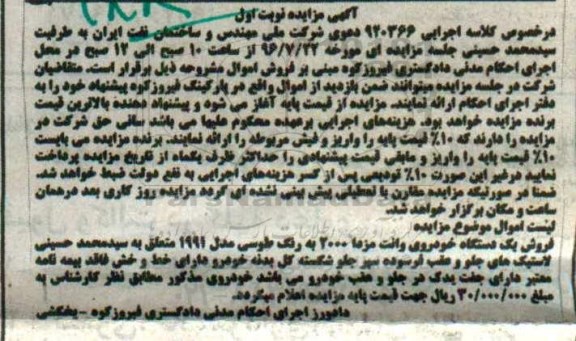 آگهی مزایده نوبت اول
درخصوص کلاسه اجرایی ۹۲۰۳۶۶ دعوی شرکت ملی مهندس و ساختمان نفت ایران به طرفیت
سیدمحمد حسینی جلسه مزایده ای مورخه ۹۶/۷/۲۲ از ساعت ۱۰ صبح الی ۱۲ صبح در محل
اجرای احکام مدنی دادگستری فیروزکوه مبنی بر فروش اموال مشروحه ذیل برقرار است. متقاضیان
شرکت در جلسه مزایده میتوانند ضمن بازدید از اموال واقع در پارکینگ فیروزکوه پیشنهاد خود را به
دفتر اجرای احکام ارائه نمایند. مزایده از قیمت پایه آغاز می شود و پیشنهاد دهنده بالاترین قیمت
برنده مزایده خواهد بود. هزینه‌های اجرایی برعهده محکوم علیها می باشد سانی حق شرکت در
مزایده را دارند که ۱۰٪ قیمت پایه را واریز و فیش مربوطه را ارائه نمایند. برنده مزایده می بایست
۱۰٪ قیمت پایه را واریز و مابقی قیمت پیشنهادی را حداکثر ظرف یکماه از تاریخ مزایده پرداخت
نمایید درغیر این صورت ۱۰٪ تودیعی پس از کسر هزینه‌های اجرایی به نفع دولت ضبط خواهد شد.
ضمنا در صورتیکه مزایده مقارن با تعطیلی پیش بینی نشده ای گردد مزایده روز کاری بعد درهمان
ساعت و مکان برگزار خواهد شد.
لیست اموال موضوع مزایده
فروش یک دستگاه خودروی وانت مزدا ۲۰۰۰ به رنگ طوسی مدل ۱۹۹۱ متعلق به سیدمحمد حسینی
لاستیک های جلو و عقب فرسوده سپر جلو شکسته کل بدنه خودرو دارای خط و خش فاقد بیمه نامه
معتبر دارای جفت یدک در جلو و عقب خودرو می باشد خودروی مذکور مطابق نظر کارشناس به
مبلغ ۳۰/۰۰۰/۰۰۰ ریال جهت قیمت پایه مزایده اعلام میگردد.
دادورز اجرای احکام مدنی دادگستری فیروزکوه - بخکشی